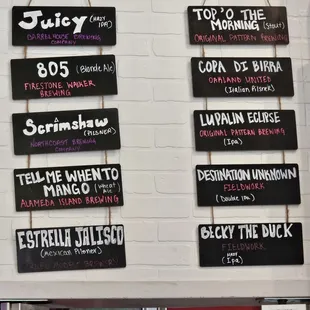 Juicy (Hazy IPA)
BARREL HOUSE BREWING
COMPANY
805 (Blonde Ale)
FIRESTONE WALKER
BREWING
Scrimshaw
(PILSNER)
NORTHCOAST BREWING
COMPANY
TELL ME WHEN TO
MANGO (Wheat Ale)
ALAMEDA ISLAND BREWING
ESTRELLA JALISCO
(Mexican Pilsner)
TOP 'O THE
MORNING (Stout)
ORIGINAL PATTERN BREWING
COPA DI BIRRA
OAKLAND UNITED
(Italian Pilsner)
LUPALIN ECLIPSE
ORIGINAL PATTERN BREWING
(Ipa)
DESTINATION UNKNOWN
FIELDWORK
(Double IPA)
BECKY THE DUCK
FIELDWORK
HAZY
(Ipa)